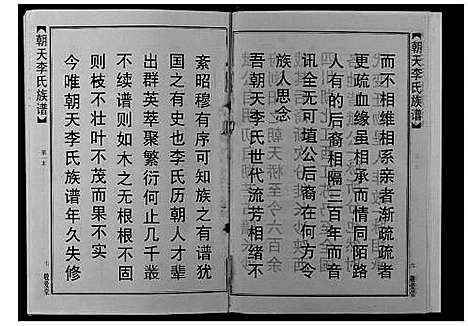 朝天李氏族谱
而不相维相系亲者渐疏疏者
更疏血缘虽相承而情同陌路
人有的后裔相隔三百年而音
讯全无可填公后裔在何方令
族人思念
吾朝天李氏世代流芳相绪不
紊昭穆有序可知族之有谱犹
国之有史也李氏历朝人才辈
出群英萃聚繁衍何止几千叢
不续谱则如木之无根根不固
则枝不壮叶不茂而果不实
今唯朝天李氏族谱年久失修
朝天李氏族谱
第一本
七
敬爱堂